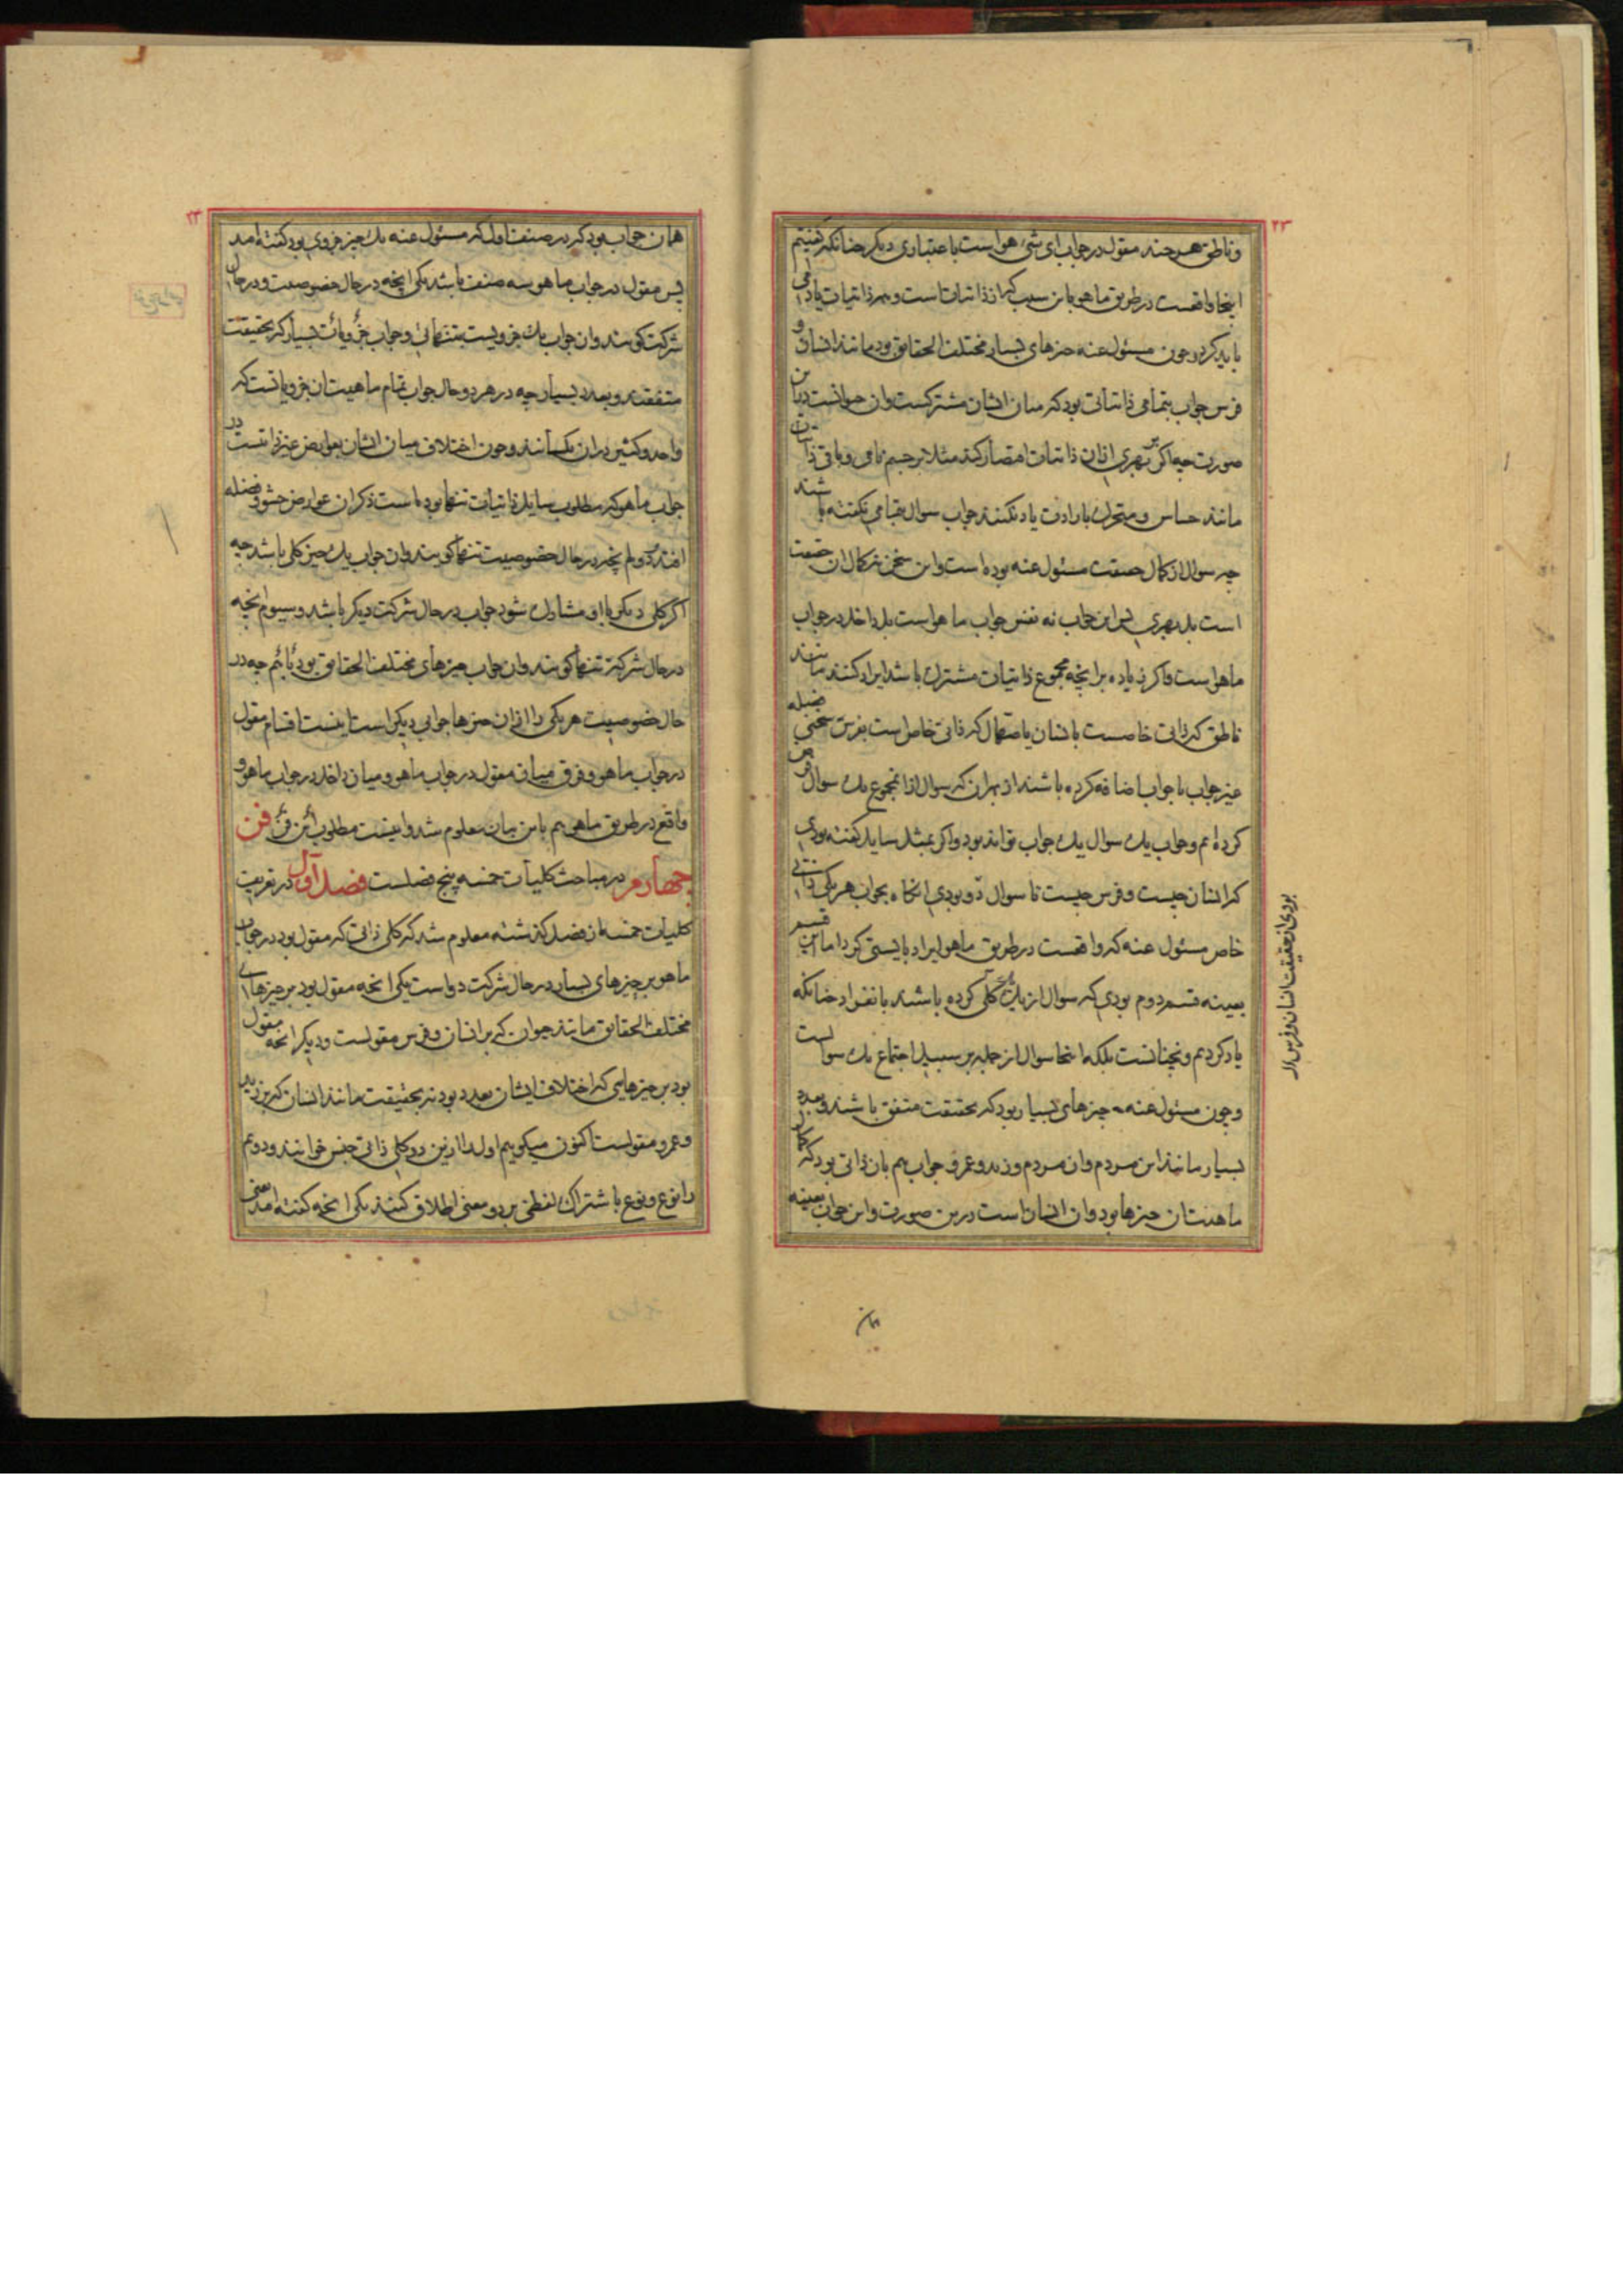 ۲۳
و ناطق هر چند مقول در جواب ای شی هو است باعتباری دیگر چنانکه گفتیم
اینجا واقعست در طریق ماهو باین سبب که از ذاتیات است و همه ذاتیات یاد
باید کرد و چون مسئول عنه چیزهای بسیار مختلف الحقایق بود مانند انسان و
فرس جواب بتمامی ذاتیاتی بود که میان ایشان مشترکست و ان حیوانست درین
صورت چه اگر بر بهری ازان ذاتیات اقتصار کند مثلا بر جسم نامی و باقی ذاتیات
مانند حساس و متحرک بارادت یاد نکنند جواب سوال بتمامی نگفته باشند
چه سوال از کمال حقیقت مسئول عنه بوده است و این سخن نه کمال ان حقیقت
است بل بهری پس این جواب نه نفس جواب ماهو است بل داخل در جواب
ماهو است و اگر زیاده بر انچه مجموع ذاتیات مشترک باشد ایراد کنند مانند
ناطق که ذاتی خاصست بانسان یا صهال که ذاتی خاص است بفرس سخنی فضله
غیر جواب با جواب اضافه کرده باشند از بهر ان که سوال از مجموع یک سوال
کرده ام و جواب یک سوال یک جواب تواند بود و اگر بمثل سایل گفته بودی
که انسان چیست و فرس چیست تا سوال دو بودی انگاه بجواب هر یکی ذاتی
خاص مسئول عنه که واقعست در طریق ماهو ایراد بایستی کرد اما این قسم
بعینه قسم دوم بودی که سوال از یک کلی کرده باشند بانفراد چنانکه
یاد کردیم و نچنانست بلکه اینجا سوال از جمله بر سبیل اجتماع یک سوالست
و چون مسئول عنه چیزهای بسیار بود که بحقیقت متفق باشند و بعدد
بسیار مانند این مردم و ان مردم و زید و عمرو جواب هم بان ذاتی بود که کمال
ماهیت ان چیزها بود و ان انسان است درین صورت و این جواب بعینه
همان
بودی از حقیقت انسان و فرس
۲۴
همان جواب بود که در صنف اول که مسئول عنه یک چیز جزوی بود گفته امد
پس مقول در جواب ماهو سه صنف باشد یکی انچه در حال خصوصیت و در حال
شرکت گویند و ان جواب یک جزویست بتنهائی و جواب جزویات بسیار که بحقیقت
متفقند و بعدد بسیار چه در هر دو حال جواب تمام ماهیت ان جزویاتست که
واحد و کثیر در ان یکسانند و چون اختلاف میان ایشان بعوارض غیر ذاتیست در
جواب ماهو که مطلوب سایل ذاتیات تنها بوده است ذکر ان عوارض حشو و فضله
افتد دوم انچه در حال خصوصیت تنها گویند و ان جواب یک چیز کلی باشد چه
اگر کلی دیگر با او مشارک شود جواب در حال شرکت دیگر باشد و سیوم انچه
در حال شرکت تنها گویند و ان جواب چیزهای مختلف الحقایق بود باهم چه در
حال خصوصیت هر یکی را ازان چیزها جوابی دیگر است اینست اقسام مقول
در جواب ماهو و فرق میان مقول در جواب ماهو و میان داخل در جواب ماهو و
واقع در طریق ماهو هم باین بیان معلوم شد و اینست مطلوب این فن فن
چهارم در مباحث کلیات خمسه پنج فصلست فصل اول در تعریف
کلیات خمسه از فصل گذشته معلوم شد که کلی ذاتی که مقول بود در جواب
ماهو بر چیزهای بسیار در حال شرکت دو است یکی انچه مقول بود بر چیزهای
مختلف الحقایق مانند حیوان که بر انسان و فرس مقولست و دیگر انچه مقول
بود بر چیزهایی که اختلاف ایشان بعدد بود نه بحقیقت مانند انسان که بر زید
و عمرو مقولست اکنون میگوییم اول را ازین دو کلی ذاتی جنس خوانند و دوم
را نوع و نوع باشتراک لفظی بر دو معنی اطلاق کنند یکی انچه گفته امد